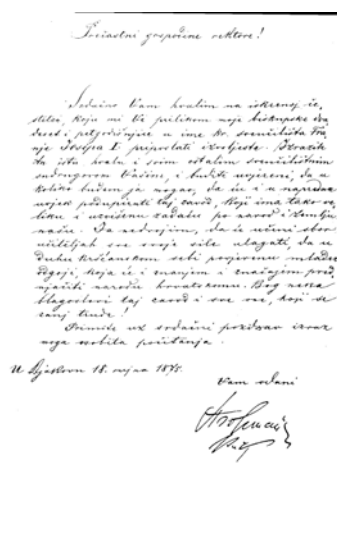 Prečastni gospodine rektore!
Srdačno Vam hvalim na iskrenoj če-
stitci, koju mi Ve prilikom moje biskupske dva-
deset i petgodišnjice u ime kr. sveučilišta Fra-
nje Josipa I pripos­lati izvoljeste. Izrazite
tu istu hvalu i svim ostalim sveučilištnim
sudrugovom Vašim, i budite uvjereni, da u
koliko budem ja mogao, da ću i u napredak
uvjek podupirati taj zavod, koji ima tako ve-
liku i uzvišenu zadaću po narod i zemlju
našu. Ja nedvojim, da će učeni sbor
učiteljah sve svoje sile ulagati, da u
duhu kršćanskom sebi povjerenu mladež
odgoji, koja će i znanjem i značajem pred-
njačiti narodu hrvatskomu. Bog neka
blagoslovi taj zavod i sve one, koji se
za nj trude!
Primite uz srdačni pozdrav izraz
moga osobita počitanja.
U Djakovu 18. rujna 1875.
Vam odani